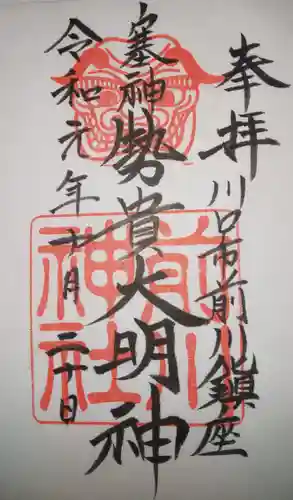 奉拝
川口市前川鎮座
塞神
勢貴大明神
令和元年十月二十日
前川神社